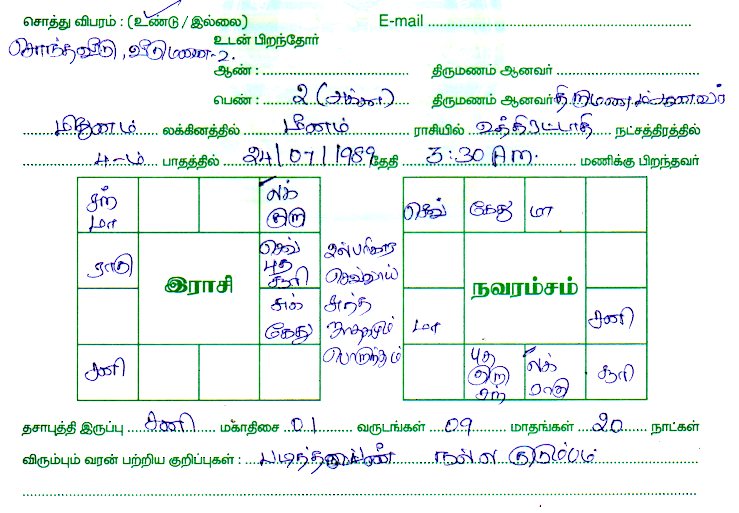 சொத்து விபரம் : (உண்டு / இல்லை) E-mail
சொந்தவீடு, வீடுமனை-2. உடன் பிறந்தோர்
ஆண் : திருமணம் ஆனவர்
பெண் : 2 (அக்கா) திருமணம் ஆனவர்
மிதுனம் லக்கினத்தில் மீனம் ராசியில் உத்திரட்டாதி நட்சத்திரத்தில்
4-ம் பாதத்தில் 24/07/1989 தேதி 3:30 Am. மணிக்கு பிறந்தவர்
சந் மா லக் குரு
செவ் கேது மா
ராகு இராசி செவ் புத சூரி
செவ்வாய்
நவரம்சம்
சுக் கேது
மா சனி
சனி
புத குரு சந் லக் ராகு சூரி
தசாபுத்தி இருப்பு சனி மகாதிசை 01 வருடங்கள் 09 மாதங்கள் 20 நாட்கள்
விரும்பும் வரன் பற்றிய குறிப்புகள் : நல்ல குடும்பம்